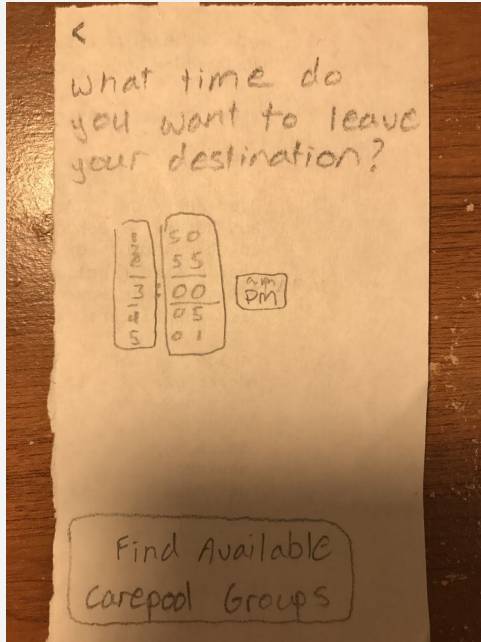 <
What time do
you want to leave
your destination?
1 50
2 55
3 : 00 am
4 05 pm
5 01
Find Available
Carepool Groups